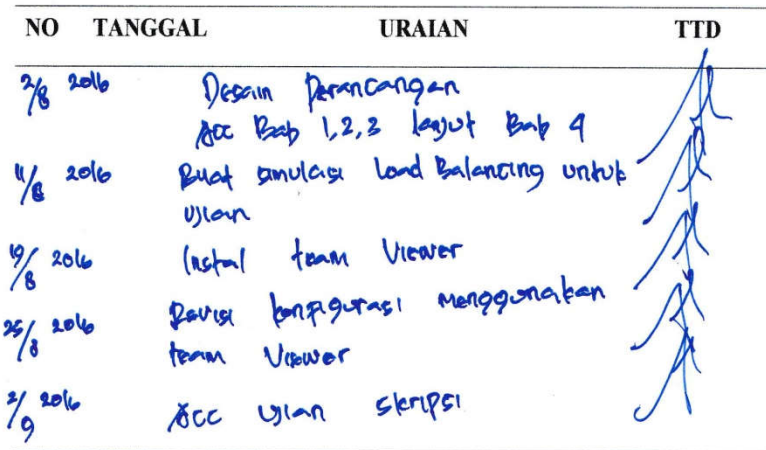 NO TANGGAL URAIAN TTD
2/8 2016 Desain Perancangan
Acc Bab 1,2,3 lanjut Bab 4
11/8 2016 Buat simulasi Load Balancing untuk
ujian
19/8 2016 Instal team Viewer
25/8 2016 Revisi konfigurasi menggunakan
team Viewer
2/9 2016 Acc Ujian skripsi